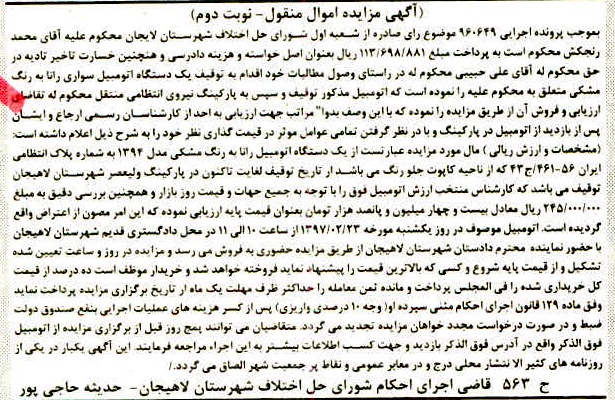 (آگهی مزایده اموال منقول- نوبت دوم)
بموجب پرونده اجرایی ۹۶۰۶۴۹ موضوع رای صادره از شعبه اول شورای حل اختلاف شهرستان لاهیجان محکوم علیه آقای محمد
رنجکش محکوم است به پرداخت مبلغ ۱۱۳/۶۹۸/۸۸۱ ریال بعنوان اصل خواسته و هزینه دادرسی و هنچنین خسارت تاخیر تادیه در
حق محکوم له آقای علی حبیبی محکوم له در راستای وصول مطالبات خود اقدام به توقیف یک دستگاه اتومبیل سواری رانا به رنگ
مشکی متعلق به محکوم علیه را نموده است که اتومبیل مذکور توقیف و سپس به پارکینگ نیروی انتظامی منتقل محکوم له تقاضای
ارزیابی و فروش آن از طریق مزایده را نموده که با این وصف بدوا" مراتب جهت ارزیابی به احد از کارشناسان رسمی ارجاع و ایشان
پس از بازدید از اتومبیل در پارکینگ و با در نظر گرفتن تمامی عوامل موثر در قیمت گذاری نظر خود را به شرح ذیل اعلام داشته است:
(مشخصات و ارزش ریالی) مال مورد مزایده عبارتست از یک دستگاه اتومبیل رانا به رنگ مشکی مدل ۱۳۹۴ به شماره پلاک انتظامی
ایران ۵۶-۴۶۱/ج۴۳ که از ناحیه کاپوت جلو رنگ می باشد از تاریخ توقیف لغایت تاکنون در پارکینگ ولیعصر شهرستان لاهیجان
توقیف می باشد که کارشناس منتخب ارزش اتومبیل فوق را با توجه به جمیع جهات و قیمت روز بازار و همچنین بررسی دقیق به مبلغ
۲۴۵/۰۰۰/۰۰۰ ریال معادل بیست و چهار میلیون و پانصد هزار تومان بعنوان قیمت پایه ارزیابی نموده که این امر مصون از اعتراض واقع
گردیده است. اتومبیل موصوف در روز یکشنبه مورخه ۱۳۹۷/۰۲/۲۳ از ساعت ۱۰ الی ۱۱ در محل دادگستری قدیم شهرستان لاهیجان
با حضور نماینده محترم دادستان شهرستان لاهیجان از طریق مزایده حضوری به فروش می رسد و مزایده در روز و ساعت تعیین شده
تشکیل و از قیمت پایه شروع و کسی که بالاترین قیمت را پیشنهاد نماید فروخته خواهد شد و خریدار موظف است ده درصد از قیمت
کل خریداری شده را فی المجلس پرداخت و مانده ثمن معامله را حداکثر ظرف مهلت یک ماه از تاریخ برگزاری مزایده پرداخت نماید
وفق ماده ۱۲۹ قانون اجرای احکام مثنی سپرده او(وجه ۱۰ درصدی واریزی) پس از کسر هزینه های عملیات اجرایی بنفع صندوق دولت
ضبط و در صورت درخواست مجدد خواهان مزایده تجدید می گردد. متقاضیان می توانند پنج روز قبل از برگزاری مزایده از اتومبیل
فوق الذکر واقع در آدرس فوق الذکر بازدید و جهت کسب اطلاعات بیشتر به این اجراء مراجعه فرمایند. این آگهی یکبار در یکی از
روزنامه های کثیر الا نتشار محلی درج و در معابر عمومی و نقاط پر جمعیت شهر الصاق می گردد./
ح ۵۶۳ قاضی اجرای احکام شورای حل اختلاف شهرستان لاهیجان- حدیثه حاجی پور